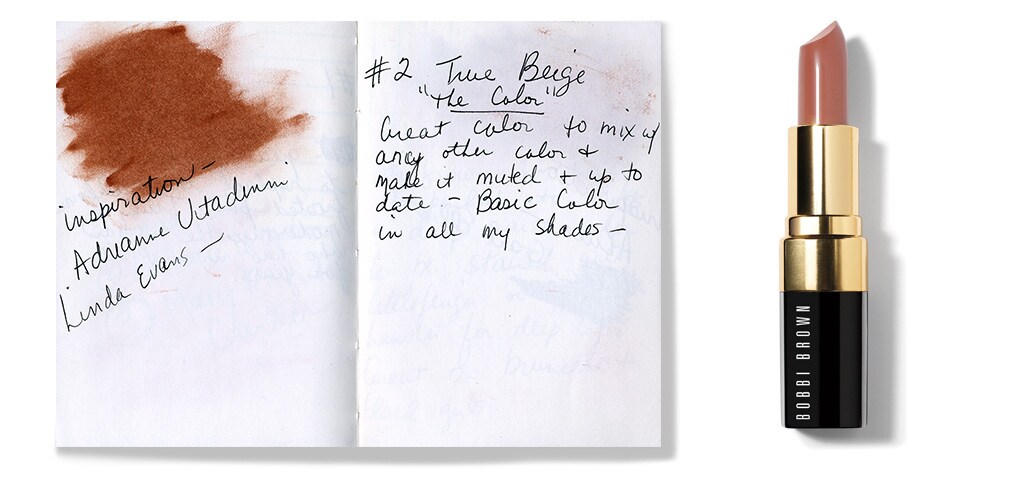 inspiration –
Adrianne Vitadinni
Linda Evans –
#2 True Beige
"the Color"
Great color to mix w/
any other color +
make it muted + up to
date – Basic Color
in all my shades –
BOBBI BROWN